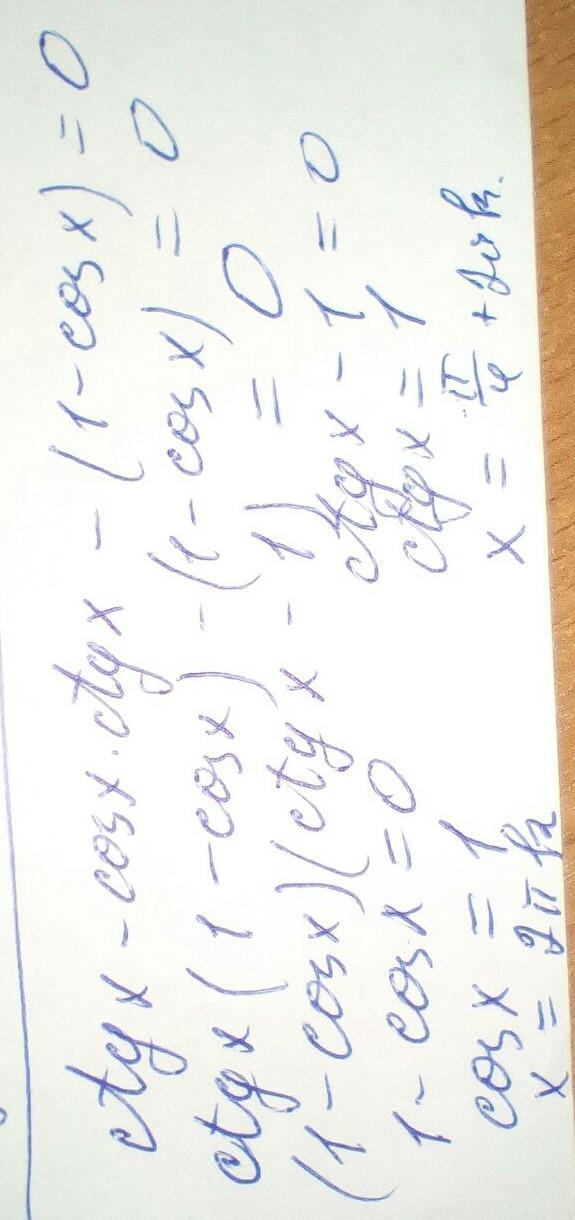 ctgx - cosx · ctgx - (1 - cosx) = 0
ctgx (1 - cosx) - (1 - cosx) = 0
(1 - cosx)(ctgx - 1) = 0
1 - cosx = 0 ctgx - 1 = 0
cosx = 1 ctgx = 1
x = 2πk x = π/4 + 2πk.